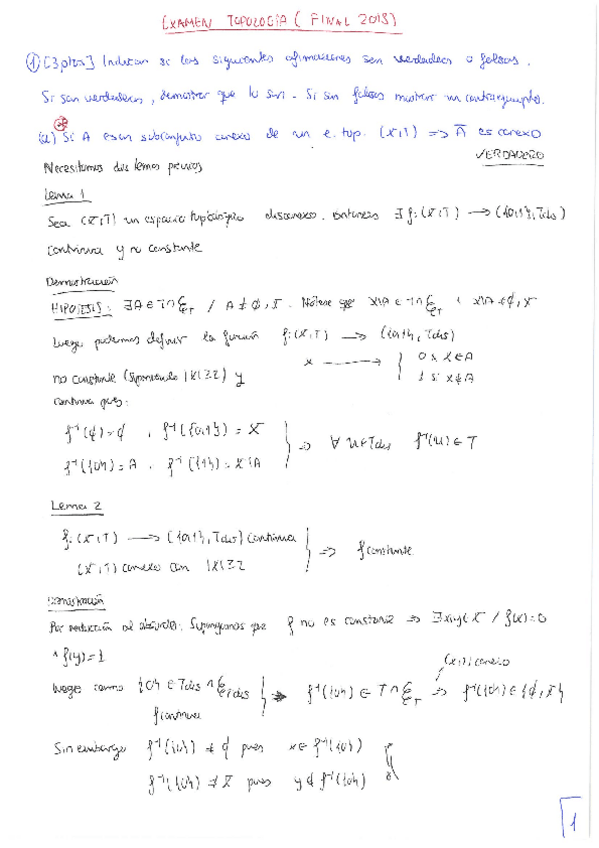 EXAMEN TOPOLOGÍA (FINAL 2018)
① [3 ptos] Indicar si las siguientes afirmaciones son verdaderas o falsas.
Si son verdaderas, demostrar que lo son. Si son falsas mostrar un contraejemplo.
(a) Si A es un subconjunto conexo de un e. top. (X,T) => Ā es conexo
VERDADERO
Necesitamos dos lemas previos
Lema 1
Sea (X,T) un espacio topológico disconexo. Entonces ∃ f: (X,T) → ({0,1}, Tdis)
continua y no constante
Demostración
HIPÓTESIS: ∃A ∈ T∩C_T / A ≠ ∅, X. Nótese que X\A ∈ T∩C_T y X\A ≠ ∅, X
Luego podemos definir la función f: (X,T) → ({0,1}, Tdis)
x → { 0 si x∈A
1 si x∉A
no constante (suponiendo |X|≥2) y
continua pues:
f⁻¹(∅)=∅ , f⁻¹({0,1}) = X
f⁻¹({0}) = A , f⁻¹({1}) = X\A } => ∀ U∈Tdis f⁻¹(U) ∈ T
Lema 2
f: (X,T) → ({0,1}, Tdis) continua
(X,T) conexo con |X|≥2 } => f constante
Demostración
Por reducción al absurdo: Supongamos que f no es constante => ∃x,y∈X / f(x)=0
∧ f(y)=1
(X,T) conexo
Luego como {0} ∈ Tdis ∩ C_Tdis
f continua } => f⁻¹({0}) ∈ T∩C_T => f⁻¹({0}) ∈ {∅, X}
Sin embargo f⁻¹({0}) ≠ ∅ pues x∈ f⁻¹({0})
f⁻¹({0}) ≠ X pues y∉ f⁻¹({0})
1